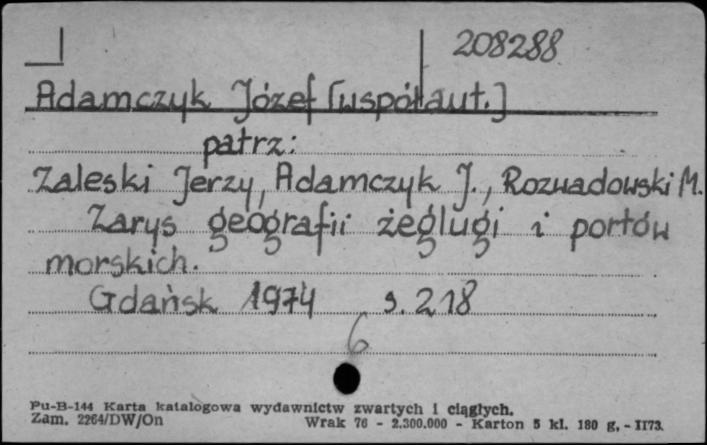 208288
Adamczyk Józef [współaut.]
patrz:
Zaleski Jerzy, Adamczyk J., Rozwadowski M.
Zarys geografii żeglugi i portów
morskich.
Gdańsk 1974 s. 218
6
Pu-B-144 Karta katalogowa wydawnictw zwartych i ciągłych.
Zam. 2264/DW/On Wrak 76 - 2.300.000 - Karton 5 kl. 180 g, - II73.